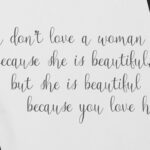 don't love a woman
because she is beautiful,
but she is beautiful
because you love h